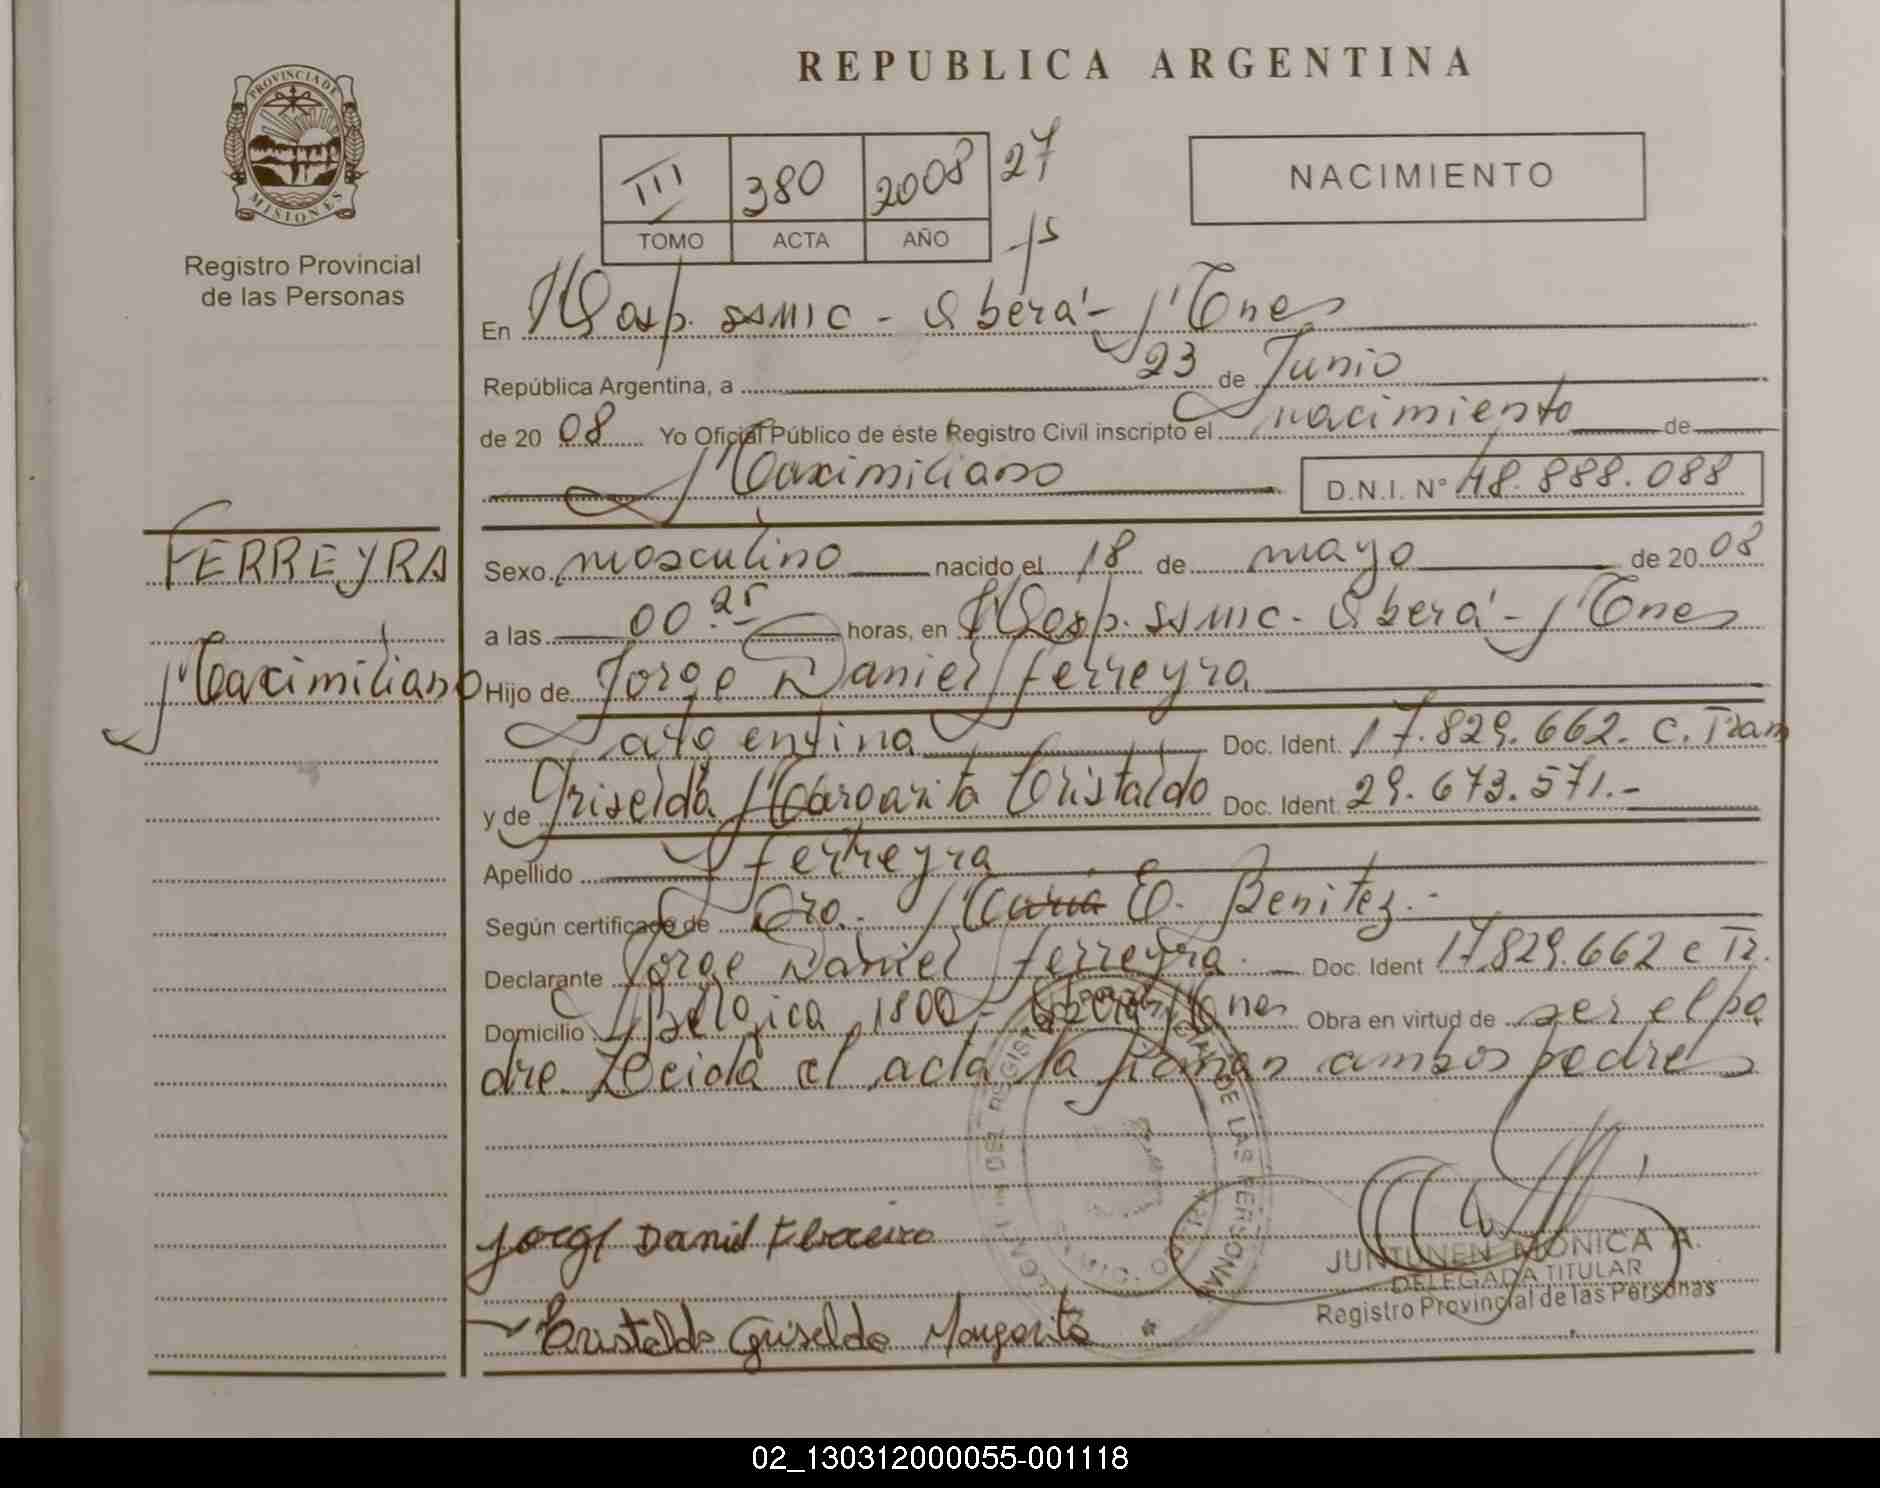 REPUBLICA ARGENTINA
PROVINCIA DE
MISIONES
Registro Provincial
de las Personas
III 380 2008 27
TOMO ACTA AÑO
NACIMIENTO
En Hosp. SSMIC - Oberá - Mnes
República Argentina, a 23 de Junio
de 20 08 Yo Oficial Público de éste Registro Civil inscripto el nacimiento de
Maximiliano D.N.I. N° 48.888.088
FERREYRA
Maximiliano
Sexo masculino nacido el 18 de mayo de 20 08
a las 00.25 horas, en Hosp. SSMIC - Oberá - Mnes
Hijo de Jorge Daniel Ferreyra
argentina Doc. Ident. 17.829.662. C. Tram
y de Griselda Margarita Cristaldo Doc. Ident. 29.673.571.-
Apellido Ferreyra
Según certificado de Dra. María E. Benitez.-
Declarante Jorge Daniel Ferreyra. Doc. Ident 17.829.662 C Tr.
Domicilio Bélgica 1800 - Oberá Mnes Obra en virtud de ser el pa
dre. Leida el acta la firman ambos padres
REGISTRO DE LAS PERSONAS
Jorge Daniel Ferreira
JUNTUNEN MONICA A.
DELEGADA TITULAR
Registro Provincial de las Personas
Cristaldo Griselda Margarita
02_130312000055-001118